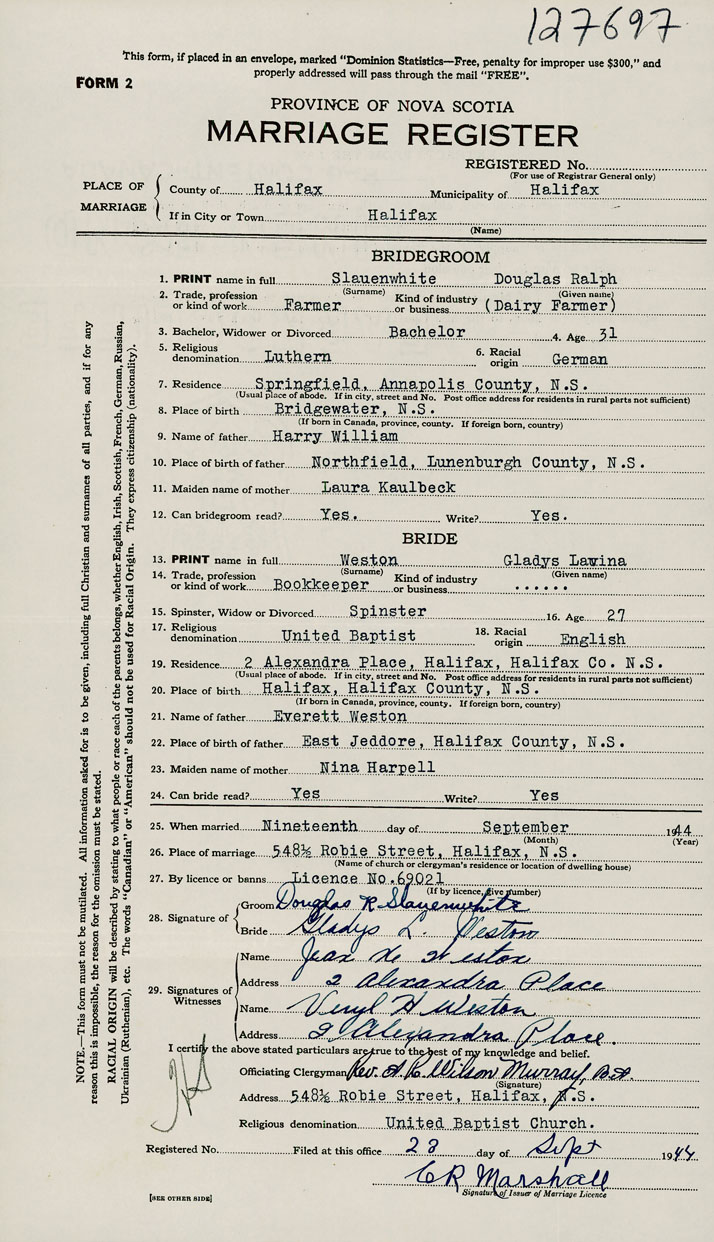 127697
This form, if placed in an envelope, marked "Dominion Statistics—Free, penalty for improper use $300," and
properly addressed will pass through the mail "FREE".
FORM 2
PROVINCE OF NOVA SCOTIA
MARRIAGE REGISTER
REGISTERED No.
(For use of Registrar General only)
PLACE OF MARRIAGE
County of Halifax Municipality of Halifax
If in City or Town Halifax
(Name)
BRIDEGROOM
1. PRINT name in full Slauenwhite Douglas Ralph
(Surname) (Given name)
2. Trade, profession or kind of work Farmer Kind of industry or business (Dairy Farmer)
3. Bachelor, Widower or Divorced Bachelor 4. Age 31
5. Religious denomination Luthern 6. Racial origin German
7. Residence Springfield, Annapolis County, N.S.
(Usual place of abode. If in city, street and No. Post office address for residents in rural parts not sufficient)
8. Place of birth Bridgewater, N.S.
(If born in Canada, province, county. If foreign born, country)
9. Name of father Harry William
10. Place of birth of father Northfield, Lunenburgh County, N.S.
11. Maiden name of mother Laura Kaulbeck
12. Can bridegroom read? Yes. Write? Yes.
BRIDE
13. PRINT name in full Weston Gladys Lavina
(Surname) (Given name)
14. Trade, profession or kind of work Bookkeeper Kind of industry or business ......
15. Spinster, Widow or Divorced Spinster 16. Age 27
17. Religious denomination United Baptist 18. Racial origin English
19. Residence 2 Alexandra Place, Halifax, Halifax Co. N.S.
(Usual place of abode. If in city, street and No. Post office address for residents in rural parts not sufficient)
20. Place of birth Halifax, Halifax County, N.S.
(If born in Canada, province, county. If foreign born, country)
21. Name of father Everett Weston
22. Place of birth of father East Jeddore, Halifax County, N.S.
23. Maiden name of mother Nina Harpell
24. Can bride read? Yes Write? Yes
25. When married Nineteenth day of September 1944
(Month) (Year)
26. Place of marriage 548½ Robie Street, Halifax, N.S.
(Name of church or clergyman's residence or location of dwelling house)
27. By licence or banns Licence No.69021
(If by licence, give number)
28. Signature of
Groom Douglas R Slauenwhite
Bride Gladys L. Weston
29. Signatures of Witnesses
Name Jean Weston
Address 2 Alexandra Place
Name Veryl H Weston
Address 2 Alexandra Place.
I certify the above stated particulars are true to the best of my knowledge and belief.
Officiating Clergyman Rev. A. R. Wilson Murray, B.A.
(Signature)
Address 548½ Robie Street, Halifax, N.S.
Religious denomination United Baptist Church.
Registered No. Filed at this office 23 day of Sept 1944
C R Marshall
Signature of Issuer of Marriage Licence
[SEE OTHER SIDE]
NOTE.—This form must not be mutilated. All information asked for is to be given, including full Christian and surnames of all parties, and if for any
reason this is impossible, the reason for the omission must be stated.
RACIAL ORIGIN will be described by stating to what people or race each of the parents belongs, whether English, Irish, Scottish, French, German, Russian,
Ukrainian (Ruthenian), etc. The words "Canadian" or "American" should not be used for Racial Origin. They express citizenship (nationality).